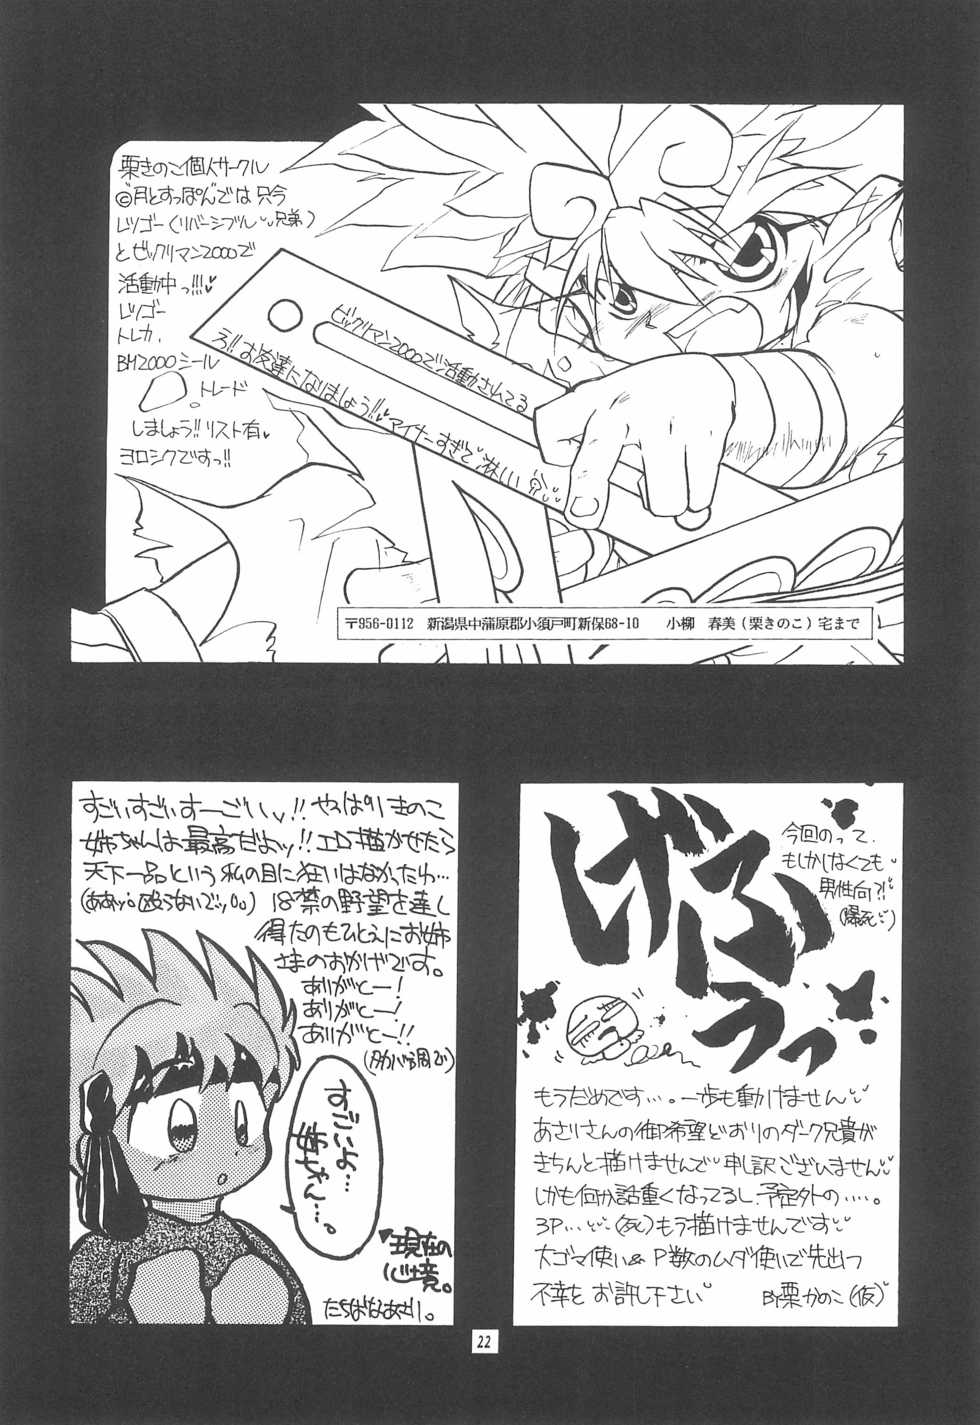 栗きのこ個人サークル
◎月とすっぽんでは只今
レツゴー(リバーシブル兄弟)
とビックリマン2000で
活動中っ!!!♥
レツゴー
トレカ、
BM2000シール
トレード
しましょう!!リスト有♥
ヨロシクですっ!!
ビックリマン2000で活動されてる
方!!お友達になりましょう!!♥マイナーすぎて淋しい
〒956-0112 新潟県中蒲原郡小須戸町新保68-10 小柳 春美(栗きのこ)宅まで
すごいすごいすーごいい!!やっぱりきのこ
姉ちゃんは最高だよッ!!エロ描かせたら
天下一品という私の目に狂いはなかったわ…
(ああッ殴らないでッ) 18禁の野望を達し
得たのもひとえにお姉
さまのおかげです。
ありがとー!
ありがとー!
ありがとー!!
すごいよ…
姉ちゃん…。
現在の
心境。
たちばなあさり。
げふっっ
今回のって、
もしかしなくても
男性向?!
(爆死)
もうだめです…。一歩も動けません
あさりさんの御希望どおりのダーク兄貴が
きちんと描けませんで申し訳ございません
しかも何か話重くなってるし、予定外の….。
3P…(死)もう描けませんです
大ゴマ使い&P数のムダ使いで先出つ
不幸をお許し下さい BY栗かのこ(仮)
22